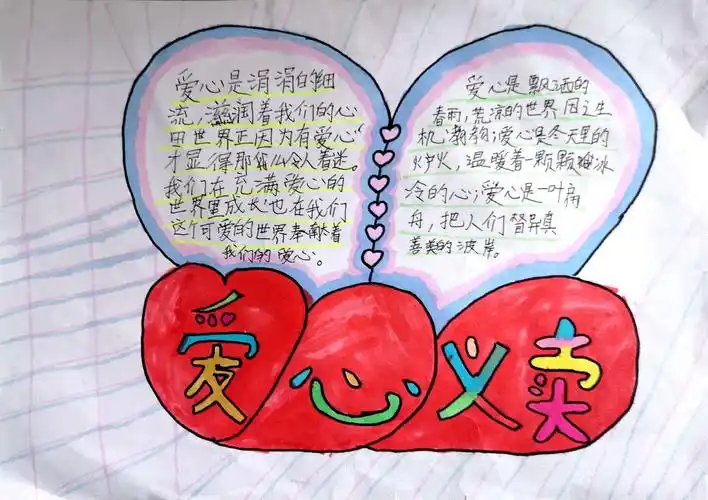 爱心是涓涓的细
流，滋润着我们的心
田世界正因为有爱心
才显得那么令人着迷。
我们在充满爱心的
世界里成长也在我们
这个可爱的世界奉献着
我们的爱心。
爱心是飘洒的
春雨，荒凉的世界因之生
机勃勃；爱心是冬天里的
火炉火，温暖着一颗颗冰
冷的心；爱心是一叶扁
舟，把人们
善美的波岸。
爱心义卖